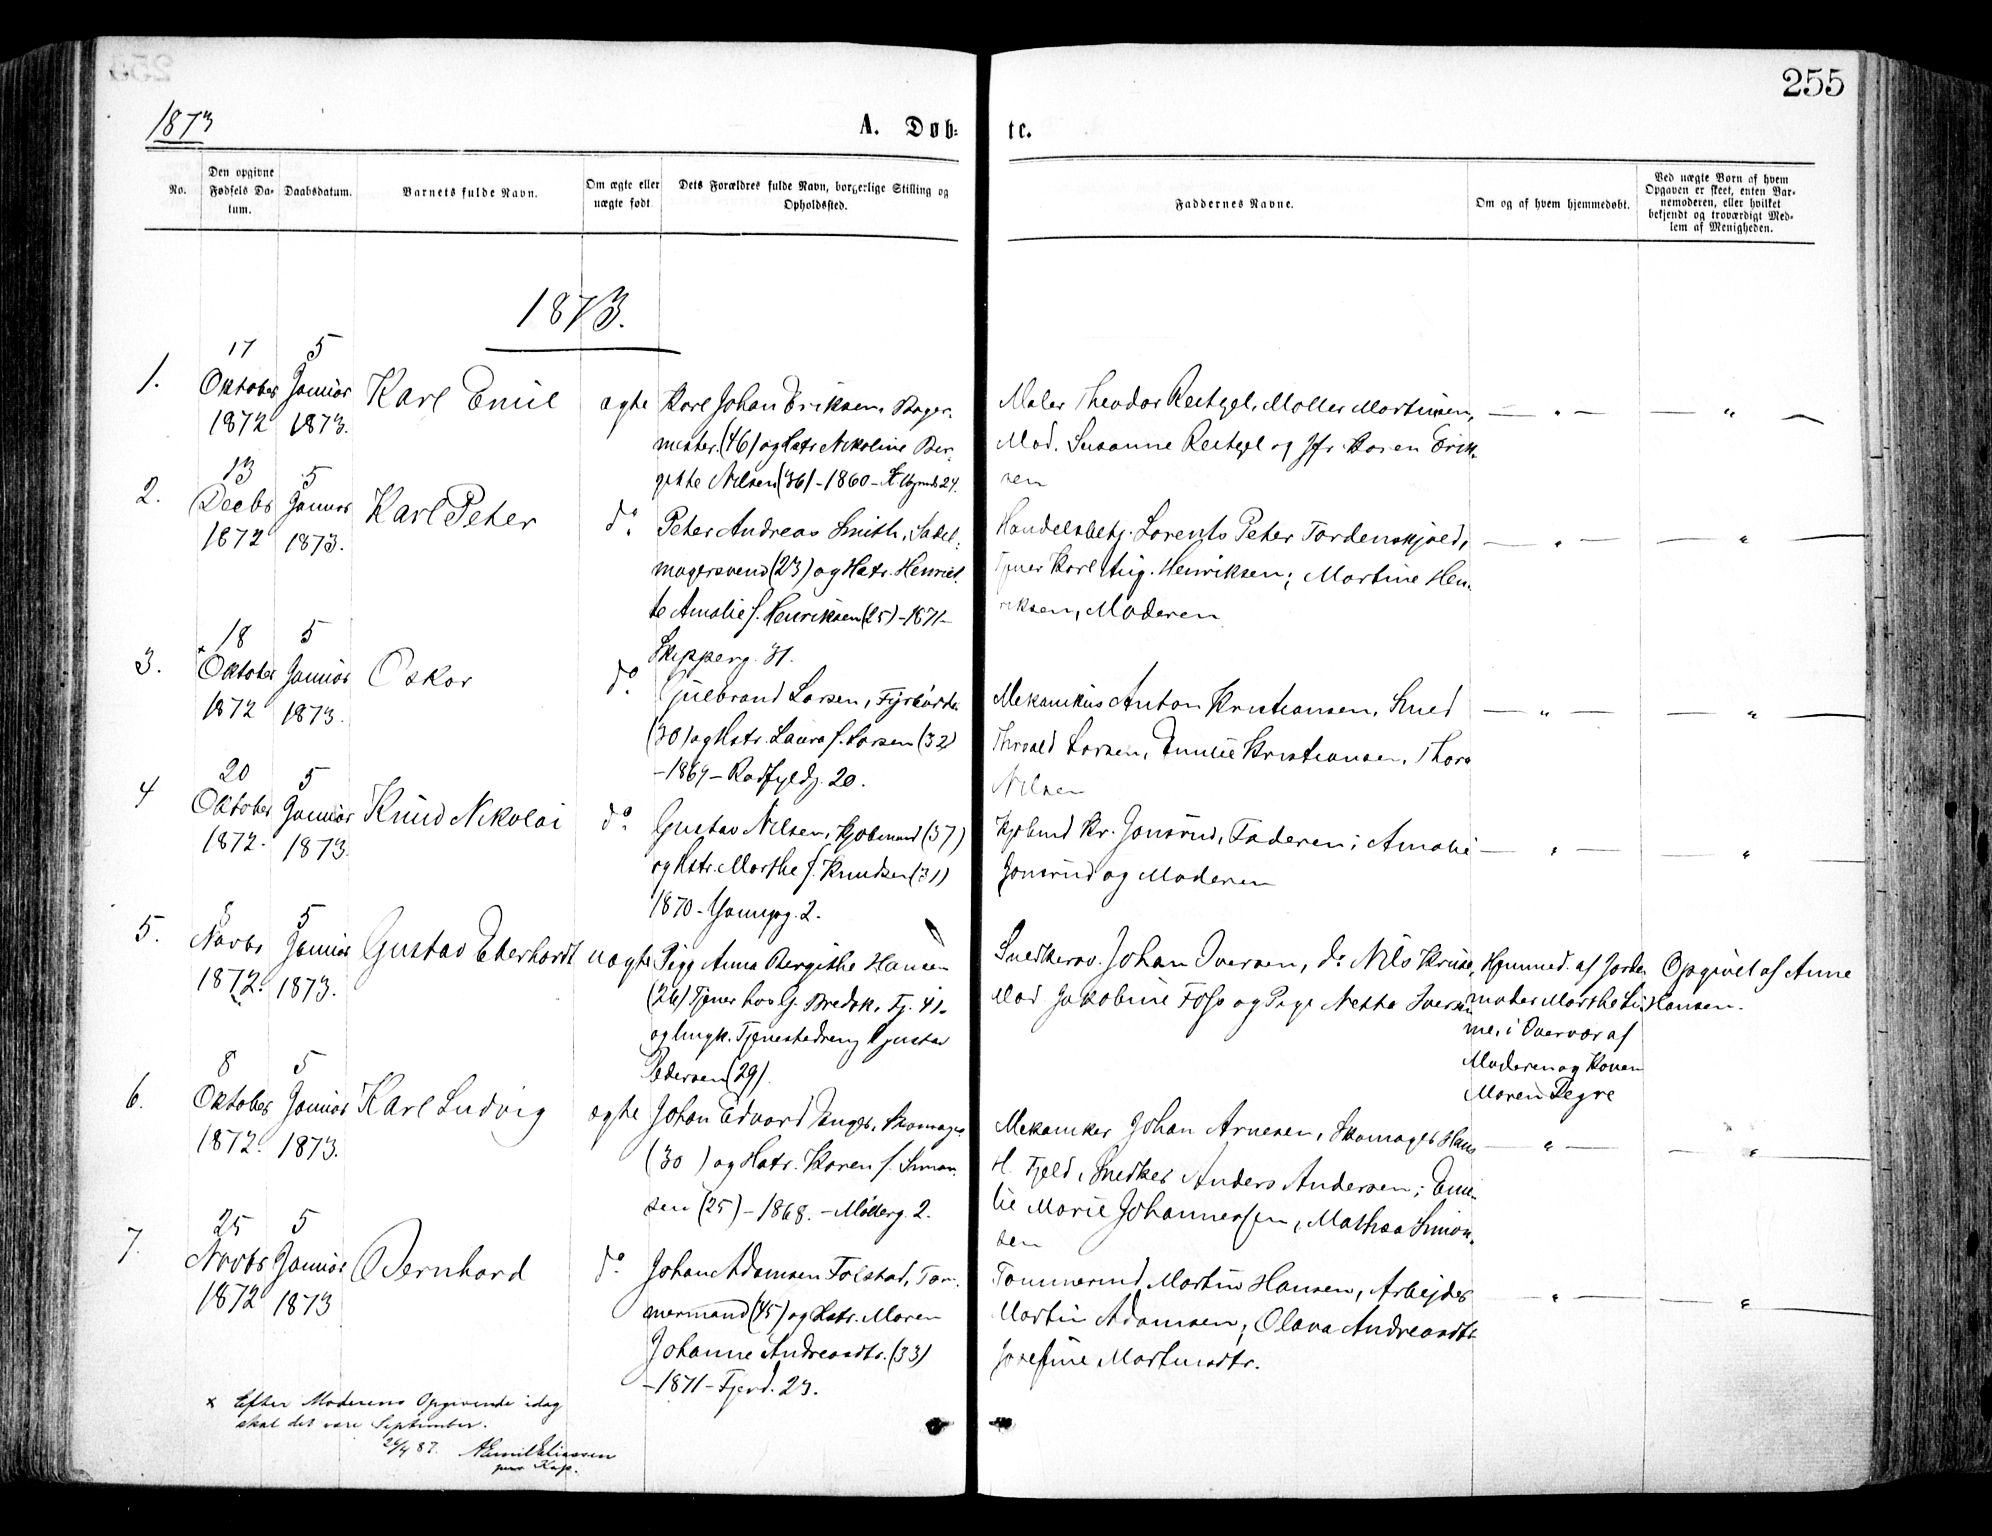 255
1873
A. Døb- te.
No.
Den opgivne Fødsels Datum.
Daabsdatum.
Barnets fulde Navn.
Om ægte eller uægte født
Dets Forældres fulde Navn, borgerlige Stilling og Opholdssted.
Faddernes Navne.
Om og af hvem hjemmedøbt.
Ved uægte Børn af hvem Opgaven er skeet, enten Barnemoderen, eller hvilket bekjendt og troværdigt Medlem af Menigheden.
1873.
1.
17 Oktober 1872
5 Januar 1873.
Karl Emil
ægte
Karl Johan Eriksen, Bager-
mester (46) og Hstr Nikoline Ber-
gitte Nilsen (36) - 1860 -
Maler Theodor Reitzel, Møller Martinsen,
Mad. Susanne Reitzel og Jfr Karen Erik-
sen
2.
13 Decbr 1872
5 Januar 1873.
Karl Peter
do.
Peter Andreas Smith, Sadel-
magersvend (23) og Hstr. Henriet-
te Amalie f. Henriksen (25) - 1871 -
Skipperg. 31.
Handelsbetj. Lorents Peter Tordenskjold,
Tjener Karl Aug. Henriksen; Martine Hen-
riksen, Moderen
3.
x 18 Oktober 1872
5 Januar 1873.
Oskar
do.
Gulbrand Larsen, Fyrbøder
(30) og Hstr. Laura f. Larsen (32)
- 1869 - Rødfyldg. 20.
Mekanikus Anton Kristiansen, Smed
Thorvald Larsen, Emilie Kristiansen, Thora
Nilsen
4
20 Oktober 1872.
5 Januar 1873.
Knud Nikolai
do.
Gustav Nilsen, Kjøbmand (37)
og Hstr. Marthe f. Knudsen (31)
1870 - 2.
Kjøbmd Kr. Jonsrud, Faderen; Amalie
Jonsrud og Moderen
5.
8 Novbr 1872.
5 Januar 1873.
Gustav Eberhardt
uægte
Pige Anna Bergithe Hansen
(26) Tjener hos G. Bredsk. Fj. 41.
og Ungk. Tjenestedreng Gustav
Pedersen (29).
Snedkersv. Johan Iversen, do Nils Kruse,
Mad Jakobine Foss og Pige Netta Iversen
Hjemmed. af Jorde-
moder Marthe
i Overvær af
Moderen og Konen
Maren Tegre
Opgivet af Anne
Hansen.
6.
8 Oktober 1872.
5 Januar 1873.
Karl Ludvig
ægte
Johan Edvard Unger, Skomager
(30 ) og Hstr. Karen f. Simon-
sen (25) - 1868. - Møllerg. 2.
Mekaniker Johan Arnesen, Skomager Hans
H. Fjeld, Snedker Anders Andersen; Emi-
lie Marie Johannessen, Mathea Simon-
sen
7.
25 Novbr 1872
5 Januar 1873
Bernhard
do.
Johan Adamsen Folstad, Tøm-
mermand (45) og Hstr. Maren
Johanne Andreasdtr. (33)
- 1871 - Fjerd. 23.
Tømmermd Martin Hansen, Arbejder
Martin Adamsen, Olava Andreasdtr
Josefine Martinsdtr.
x Efter Moderens Opgivende idag
skal det være September.
26/4 87. A Emil Eliassen
pers Kap.